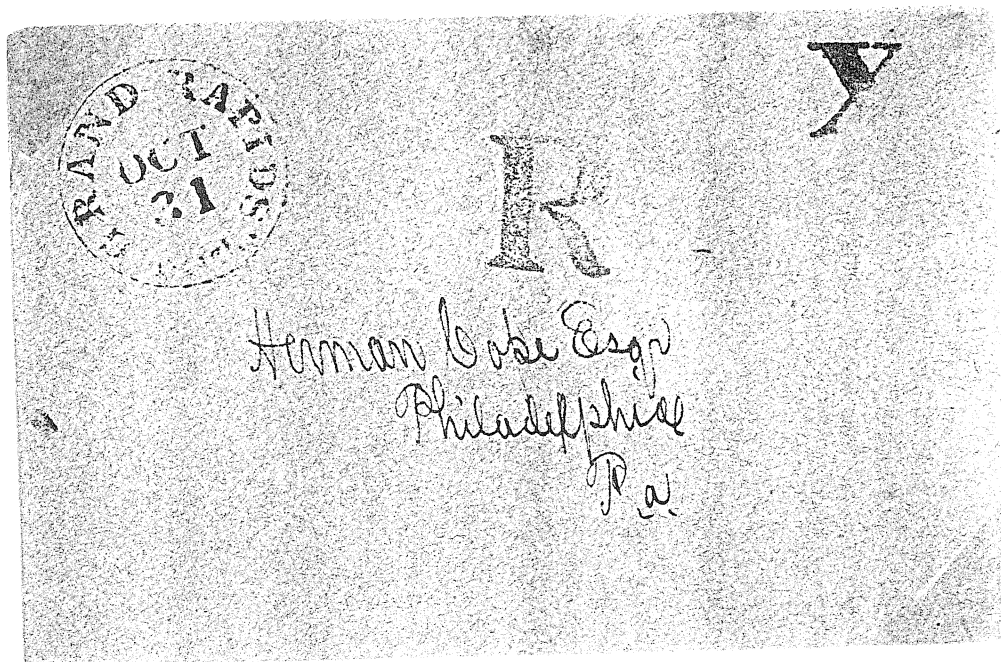 GRAND RAPIDS
OCT
21
R
Y
Herman Cope Esqr
Philadelphia
Pa